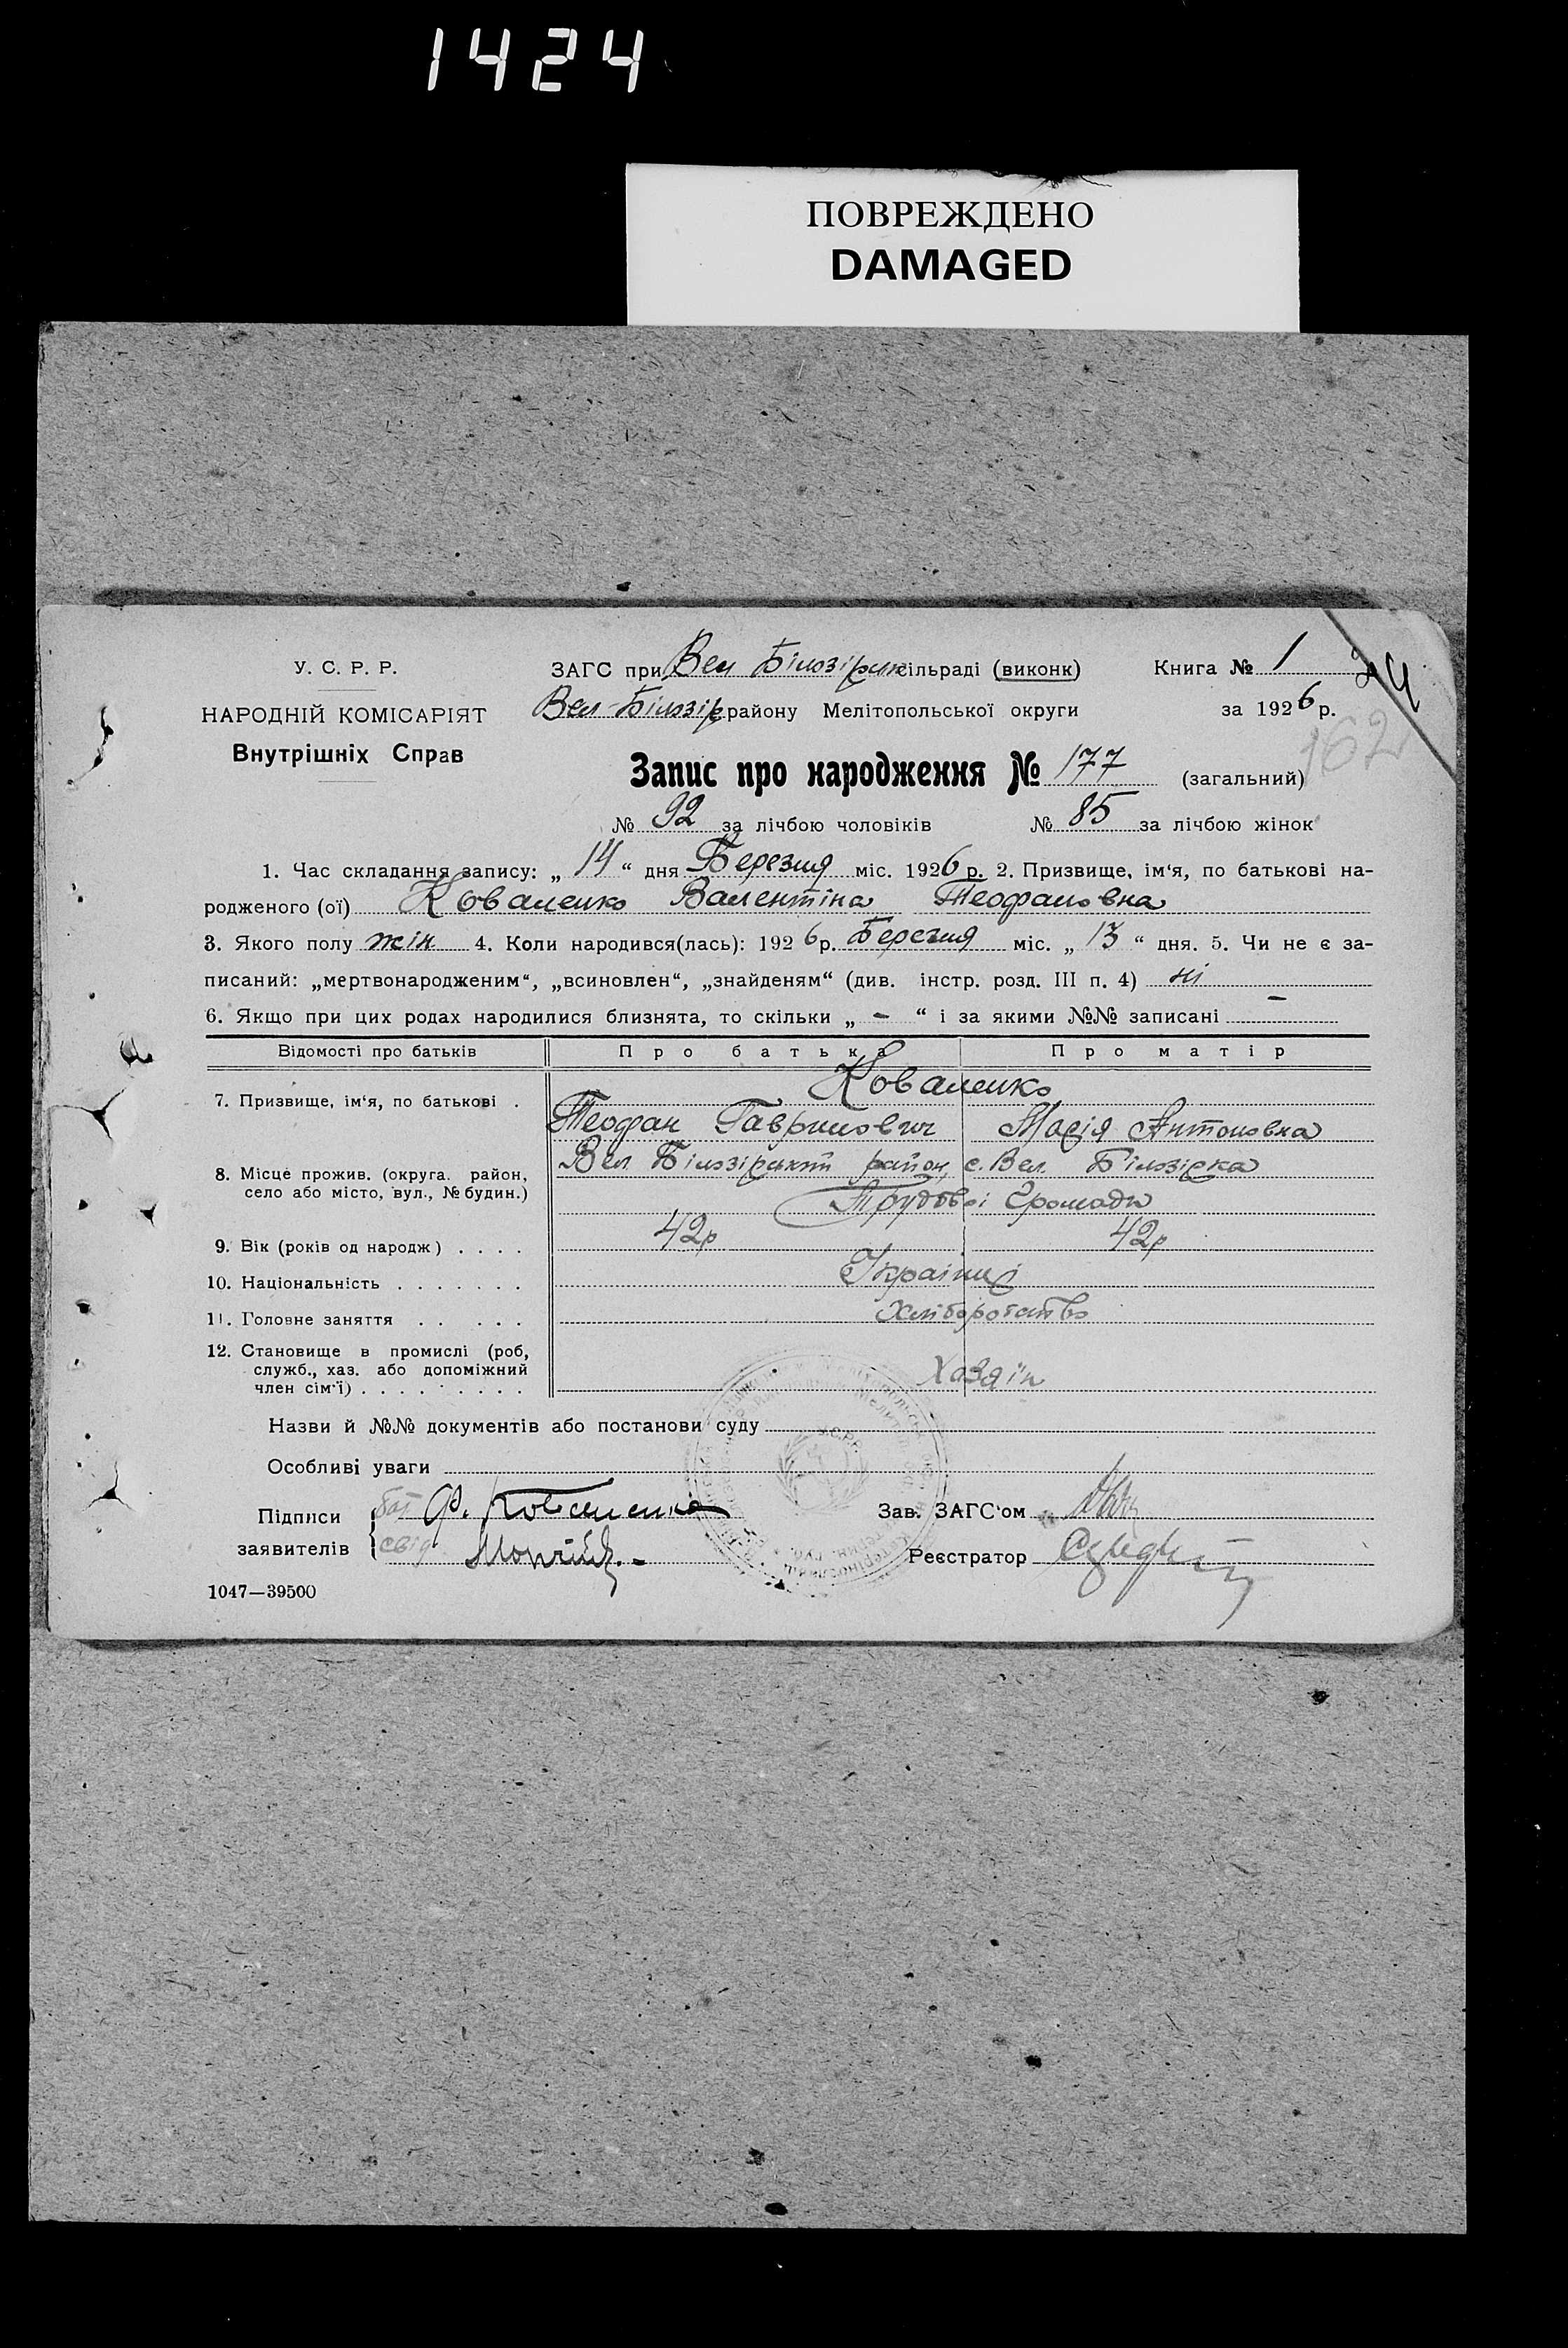 1424
ПОВРЕЖДЕНО
DAMAGED
У. С. Р. Р.
НАРОДНІЙ КОМІСАРІЯТ
Внутрішніх Справ
ЗАГС при Вел Білозірк сільраді (виконк)
Вел-Білозір району Мелітопольської округи
Книга № 1
за 1926 р.
162
Запис про народження № 177 (загальний)
№ 92 за лічбою чоловіків № 85 за лічбою жінок
1. Час складання запису: „ 14 “ дня Березня міс. 1926 р. 2. Призвище, ім‘я, по батькові на-
родженого (ої) Коваленко Валентіна Теофановна
3. Якого полу жін 4. Коли народився(лась): 1926 р. Березня міс. „ 13 “ дня. 5. Чи не є за-
писаний: „мертвонародженим“, „всиновлен“, „знайденям“ (див. інстр. розд. III п. 4) ні
6. Якщо при цих родах народилися близнята, то скільки „ - “ і за якими №№ записані -
Відомості про батьків Про батька Про матір
Коваленко
7. Призвище, ім‘я, по батькові .
Теофан Гаврилович Марія Антоновна
8. Місце прожив. (округа. район,
село або місто, вул., № будин.)
Вел Білозірський район, с. Вел. Білозірка
Трудової Громади
9. Вік (років од народж) . . . . 42р 42р
10. Національність . . . . . . . Українці
11. Головне заняття . . . . . Хліборобство
12. Становище в промислі (роб,
служб., хаз. або допоміжний
член сім‘ї) . . . . . . . . . Хазяїн
Назви й №№ документів або постанови суду
Особливі уваги
Підписи
заявителів
бат Ф. Коваленко
свід
Зав. ЗАГС‘ом
Реєстратор
У.С.Р.Р.
1047—39500